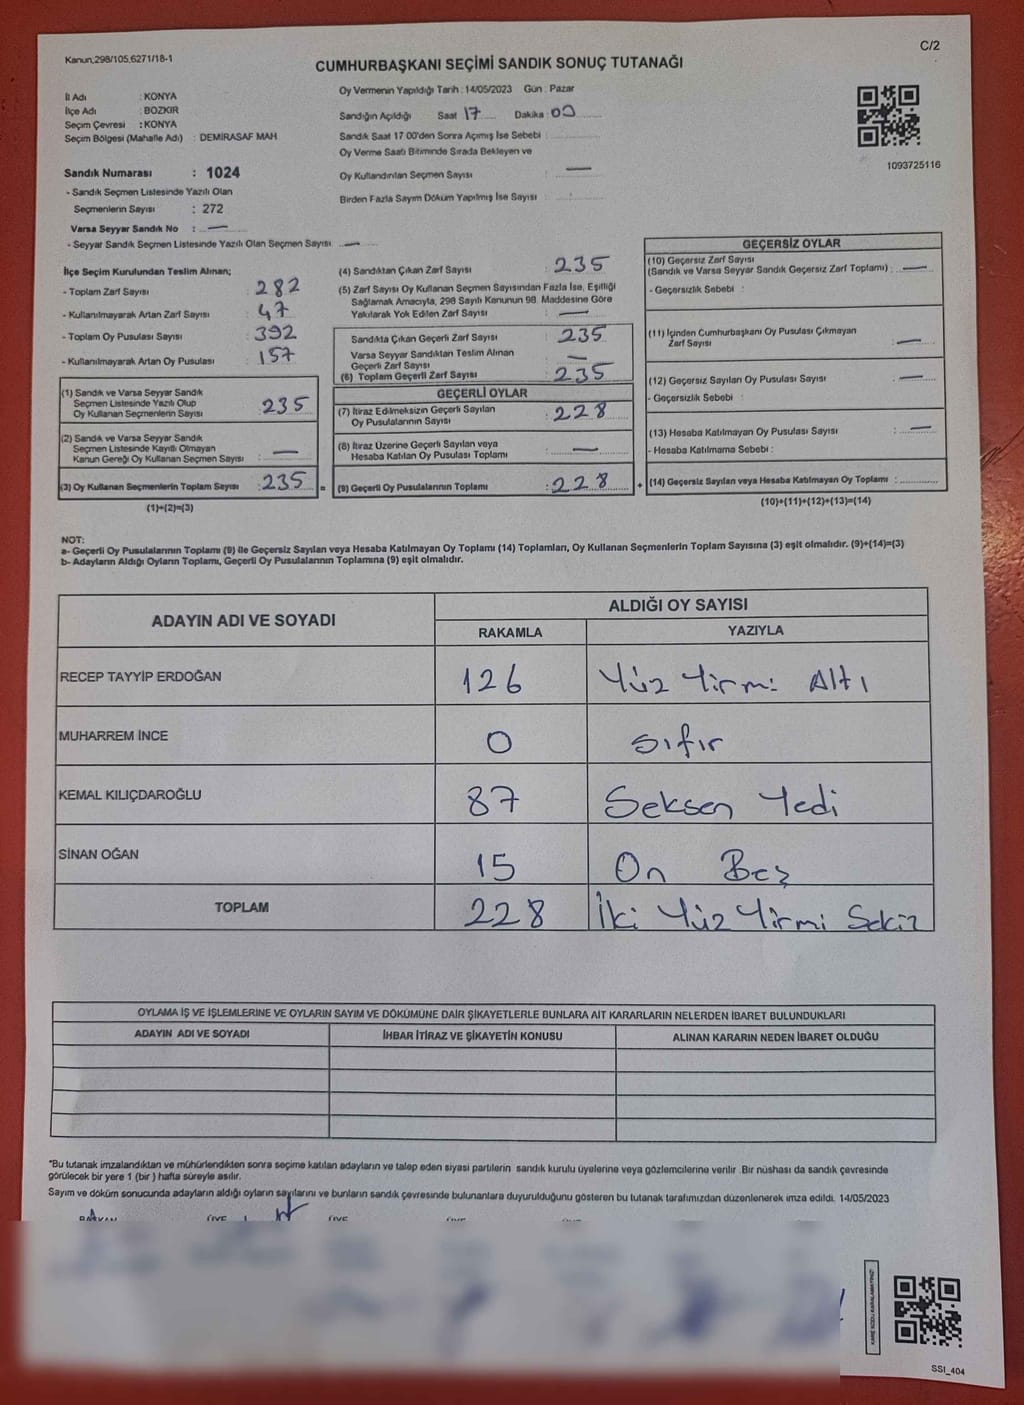 C/2
Kanun,298/105,6271/18-1
CUMHURBAŞKANI SEÇİMİ SANDIK SONUÇ TUTANAĞI
İl Adı : KONYA
İlçe Adı : BOZKIR
Seçim Çevresi : KONYA
Seçim Bölgesi (Mahalle Adı) : DEMİRASAF MAH
Oy Vermenin Yapıldığı Tarih : 14/05/2023 Gün : Pazar
Sandığın Açıldığı Saat 17 Dakika : 00
Sandık Saat 17 00'den Sonra Açımış İse Sebebi :
Oy Verme Saati Bitiminde Sırada Bekleyen ve
Oy Kullandırılan Seçmen Sayısı : —
Birden Fazla Sayım Döküm Yapılmış İse Sayısı :
1093725116
Sandık Numarası : 1024
- Sandık Seçmen Listesinde Yazılı Olan
Seçmenlerin Sayısı : 272
Varsa Seyyar Sandık No : —
- Seyyar Sandık Seçmen Listesinde Yazılı Olan Seçmen Sayısı : —
İlçe Seçim Kurulundan Teslim Alınan;
- Toplam Zarf Sayısı : 282
- Kullanılmayarak Artan Zarf Sayısı : 47
- Toplam Oy Pusulası Sayısı : 392
- Kullanılmayarak Artan Oy Pusulası : 157
(1) Sandık ve Varsa Seyyar Sandık
Seçmen Listesinde Yazılı Olup
Oy Kullanan Seçmenlerin Sayısı : 235
(2) Sandık ve Varsa Seyyar Sandık
Seçmen Listesinde Kayıtlı Olmayan
Kanun Gereği Oy Kullanan Seçmen Sayısı : —
(3) Oy Kullanan Seçmenlerin Toplam Sayısı : 235 =
(1)+(2)=(3)
(4) Sandıktan Çıkan Zarf Sayısı : 235
(5) Zarf Sayısı Oy Kullanan Seçmen Sayısından Fazla İse, Eşitliği
Sağlamak Amacıyla, 298 Sayılı Kanunun 98. Maddesine Göre
Yakılarak Yok Edilen Zarf Sayısı : —
Sandıkta Çıkan Geçerli Zarf Sayısı : 235
Varsa Seyyar Sandıktan Teslim Alınan
Geçerli Zarf Sayısı : —
(6) Toplam Geçerli Zarf Sayısı : 235
GEÇERLİ OYLAR
(7) İtiraz Edilmeksizin Geçerli Sayılan
Oy Pusulalarının Sayısı : 228
(8) İtiraz Üzerine Geçerli Sayılan veya
Hesaba Katılan Oy Pusulası Toplamı : —
(9) Geçerli Oy Pusulalarının Toplamı : 228 +
GEÇERSİZ OYLAR
(10) Geçersiz Zarf Sayısı
(Sandık ve Varsa Seyyar Sandık Geçersiz Zarf Toplamı) : —
- Geçersizlik Sebebi :
(11) İçinden Cumhurbaşkanı Oy Pusulası Çıkmayan
Zarf Sayısı : —
(12) Geçersiz Sayılan Oy Pusulası Sayısı : —
- Geçersizlik Sebebi :
(13) Hesaba Katılmayan Oy Pusulası Sayısı : —
- Hesaba Katılmama Sebebi :
(14) Geçersiz Sayılan veya Hesaba Katılmayan Oy Toplamı :
(10)+(11)+(12)+(13)=(14)
NOT:
a- Geçerli Oy Pusulalarının Toplamı (9) ile Geçersiz Sayılan veya Hesaba Katılmayan Oy Toplamı (14) Toplamları, Oy Kullanan Seçmenlerin Toplam Sayısına (3) eşit olmalıdır. (9)+(14)=(3)
b- Adayların Aldığı Oyların Toplamı, Geçerli Oy Pusulalarının Toplamına (9) eşit olmalıdır.
ADAYIN ADI VE SOYADI
ALDIĞI OY SAYISI
RAKAMLA YAZIYLA
RECEP TAYYİP ERDOĞAN 126 Yüz Yirmi Altı
MUHARREM İNCE 0 sıfır
KEMAL KILIÇDAROĞLU 87 Seksen Yedi
SİNAN OĞAN 15 On Beş
TOPLAM 228 İki Yüz Yirmi Sekiz
OYLAMA İŞ VE İŞLEMLERİNE VE OYLARIN SAYIM VE DÖKÜMÜNE DAİR ŞİKAYETLERLE BUNLARA AİT KARARLARIN NELERDEN İBARET BULUNDUKLARI
ADAYIN ADI VE SOYADI İHBAR İTİRAZ VE ŞİKAYETİN KONUSU ALINAN KARARIN NEDEN İBARET OLDUĞU
*Bu tutanak imzalandıktan ve mühürlendikten sonra seçime katılan adayların ve talep eden siyasi partilerin sandık kurulu üyelerine veya gözlemcilerine verilir .Bir nüshası da sandık çevresinde
görülecek bir yere 1 (bir ) hafta süreyle asılır.
Sayım ve döküm sonucunda adayların aldığı oyların sayılarını ve bunların sandık çevresinde bulunanlara duyurulduğunu gösteren bu tutanak tarafımızdan düzenlenerek imza edildi. 14/05/2023
BAŞKAN ÜYE ÜYE ÜYE ÜYE
KARE KODU KARALAMAYINIZ!
SSI_404